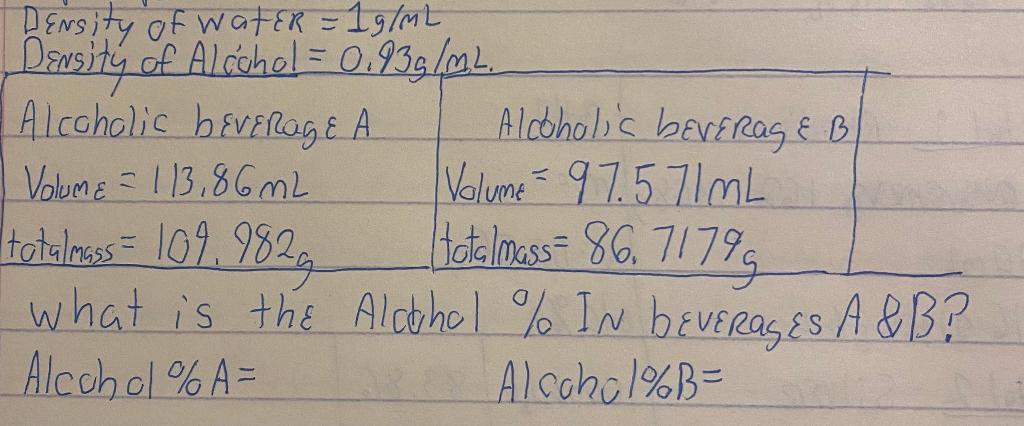 Density of water = 1g/mL
Density of Alcohol = 0.93g/mL.
Alcoholic beverage A
Alcoholic beverage B
Volume = 113.86mL
Volume = 97.571mL
total mass = 109.982g
total mass = 86.7179g
What is the Alcohol % IN beverages A & B?
Alcohol % A =
Alcohol % B =